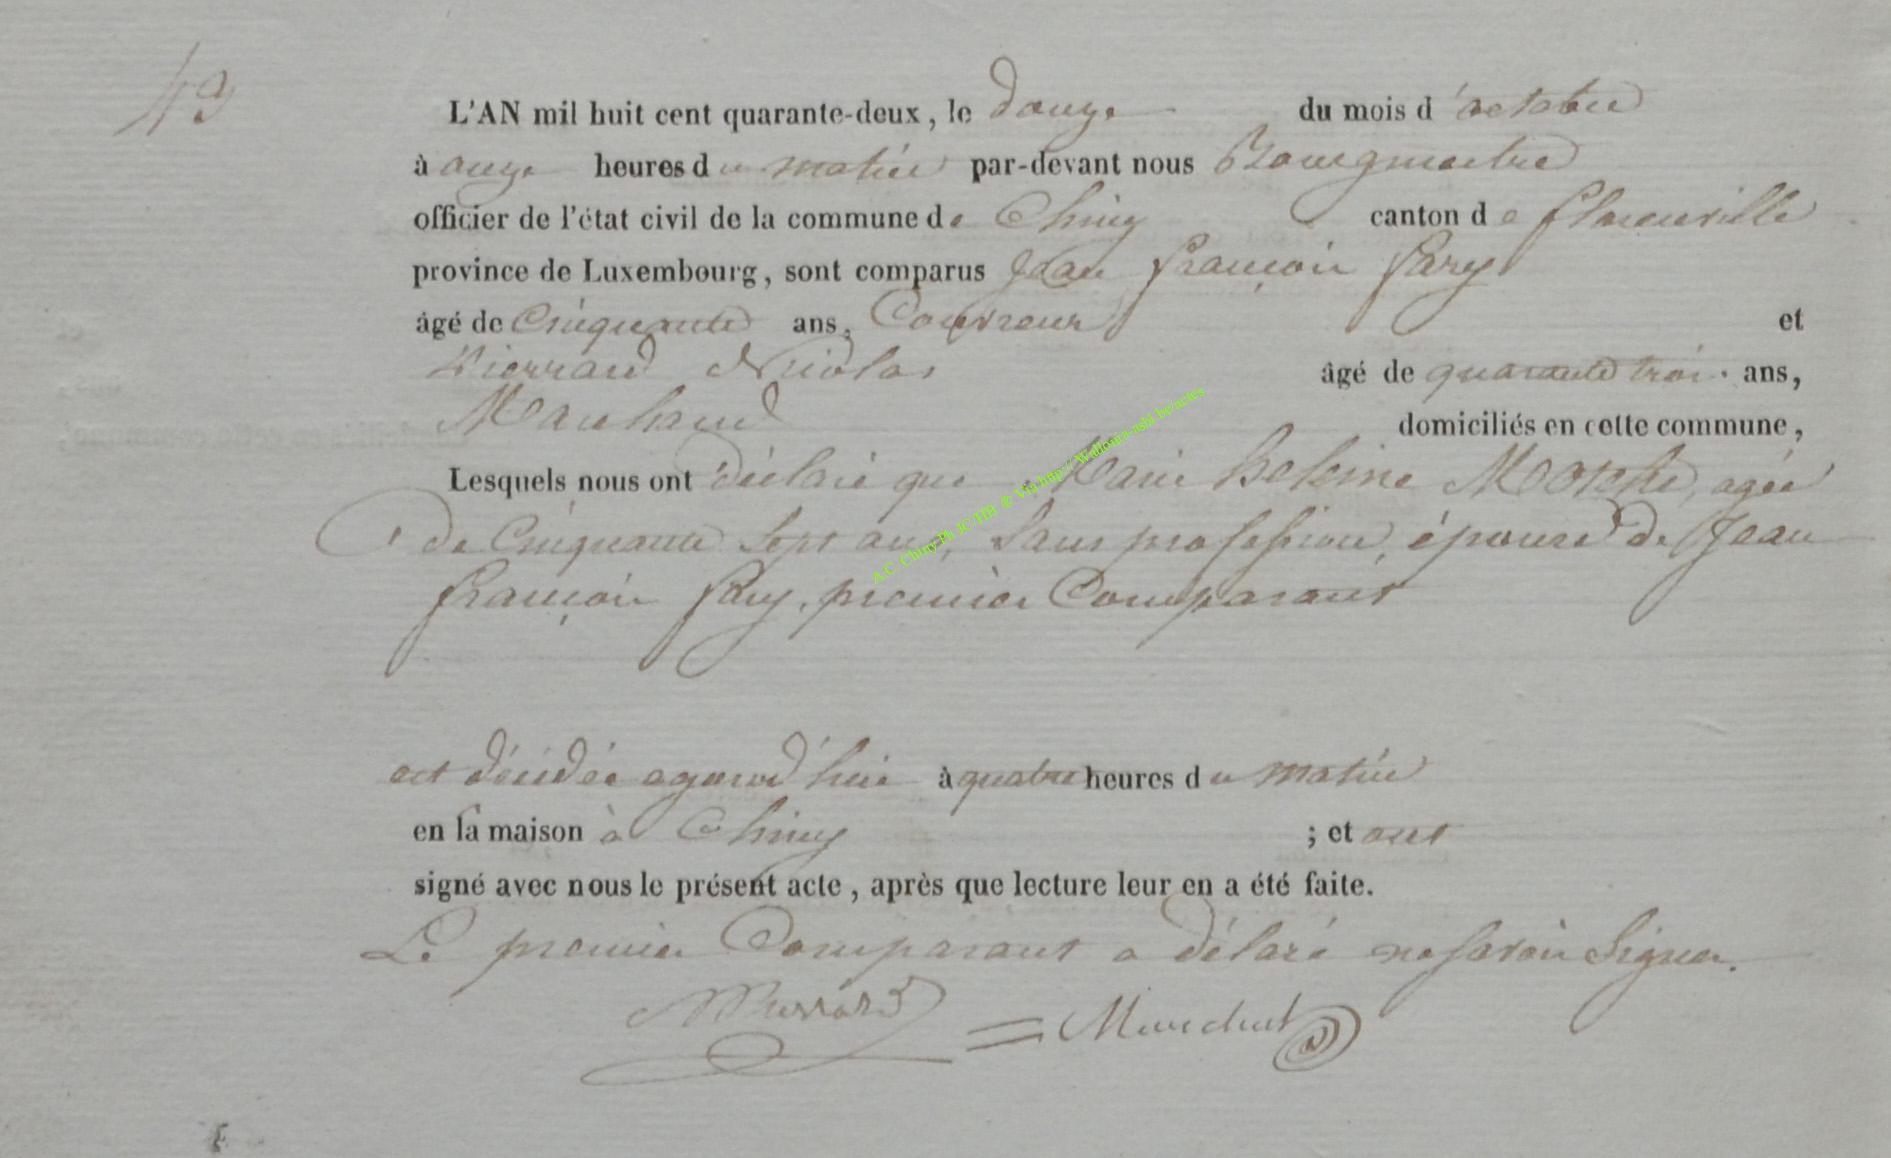 43
L'AN mil huit cent quarante-deux, le douze du mois d'octobre
à onze heures du matin par-devant nous Bourgmestre
officier de l'état civil de la commune de Chiny canton de florenville
province de Luxembourg, sont comparus Jean françois fary
âgé de Cinquante ans, Couvreur et
Pierrard Nicolas âgé de quarante trois ans,
Marchand domiciliés en cette commune,
Lesquels nous ont déclaré que Marie agée
de Cinquante Sept ans, Sans profession, épouse de Jean
françois fary, premier Comparant
est décédée aujourd'hui à quatre heures du matin
en la maison à Chiny ; et ont
signé avec nous le présent acte, après que lecture leur en a été faite.
Le premier Comparant a déclaré ne savoir Signer.
A.C. Chiny Ph JC HB & Via http://Wallonia-asbl.be/actes